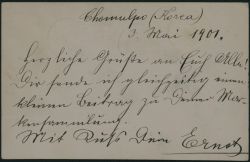 Chemulpo (Korea)
3. Mai 1901.
Herzliche Grüße an Euch Alle!
Dir sende ich gleichzeitig einen
kleinen Beitrag zu Deiner Mar-
kensammlung.
Mit Kuss Dein Ernst